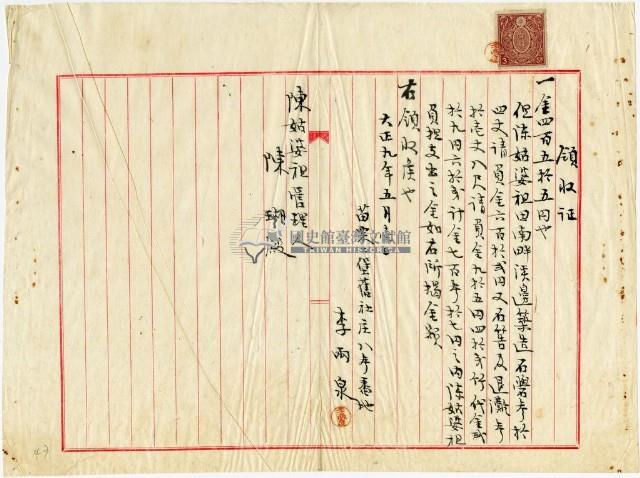 領收証
一金四百五拾五円也
但陳姑婆祖田南畔渓邊築造石礐參拾
四丈請負金六百拾弐円又石筥及
拾壱丈八尺請負金九拾五円四拾弐 代金弐
拾九円六拾弐計金七百參拾七円之内陳姑婆祖
負担支出之金如右所揭金額
右領收候也
大正九年五月
苗栗 舊社庄八參番地
李雨泉
陳姑婆祖管理人
陳瑚
國史館臺灣文獻館
TAIWAN HISTORICA
47